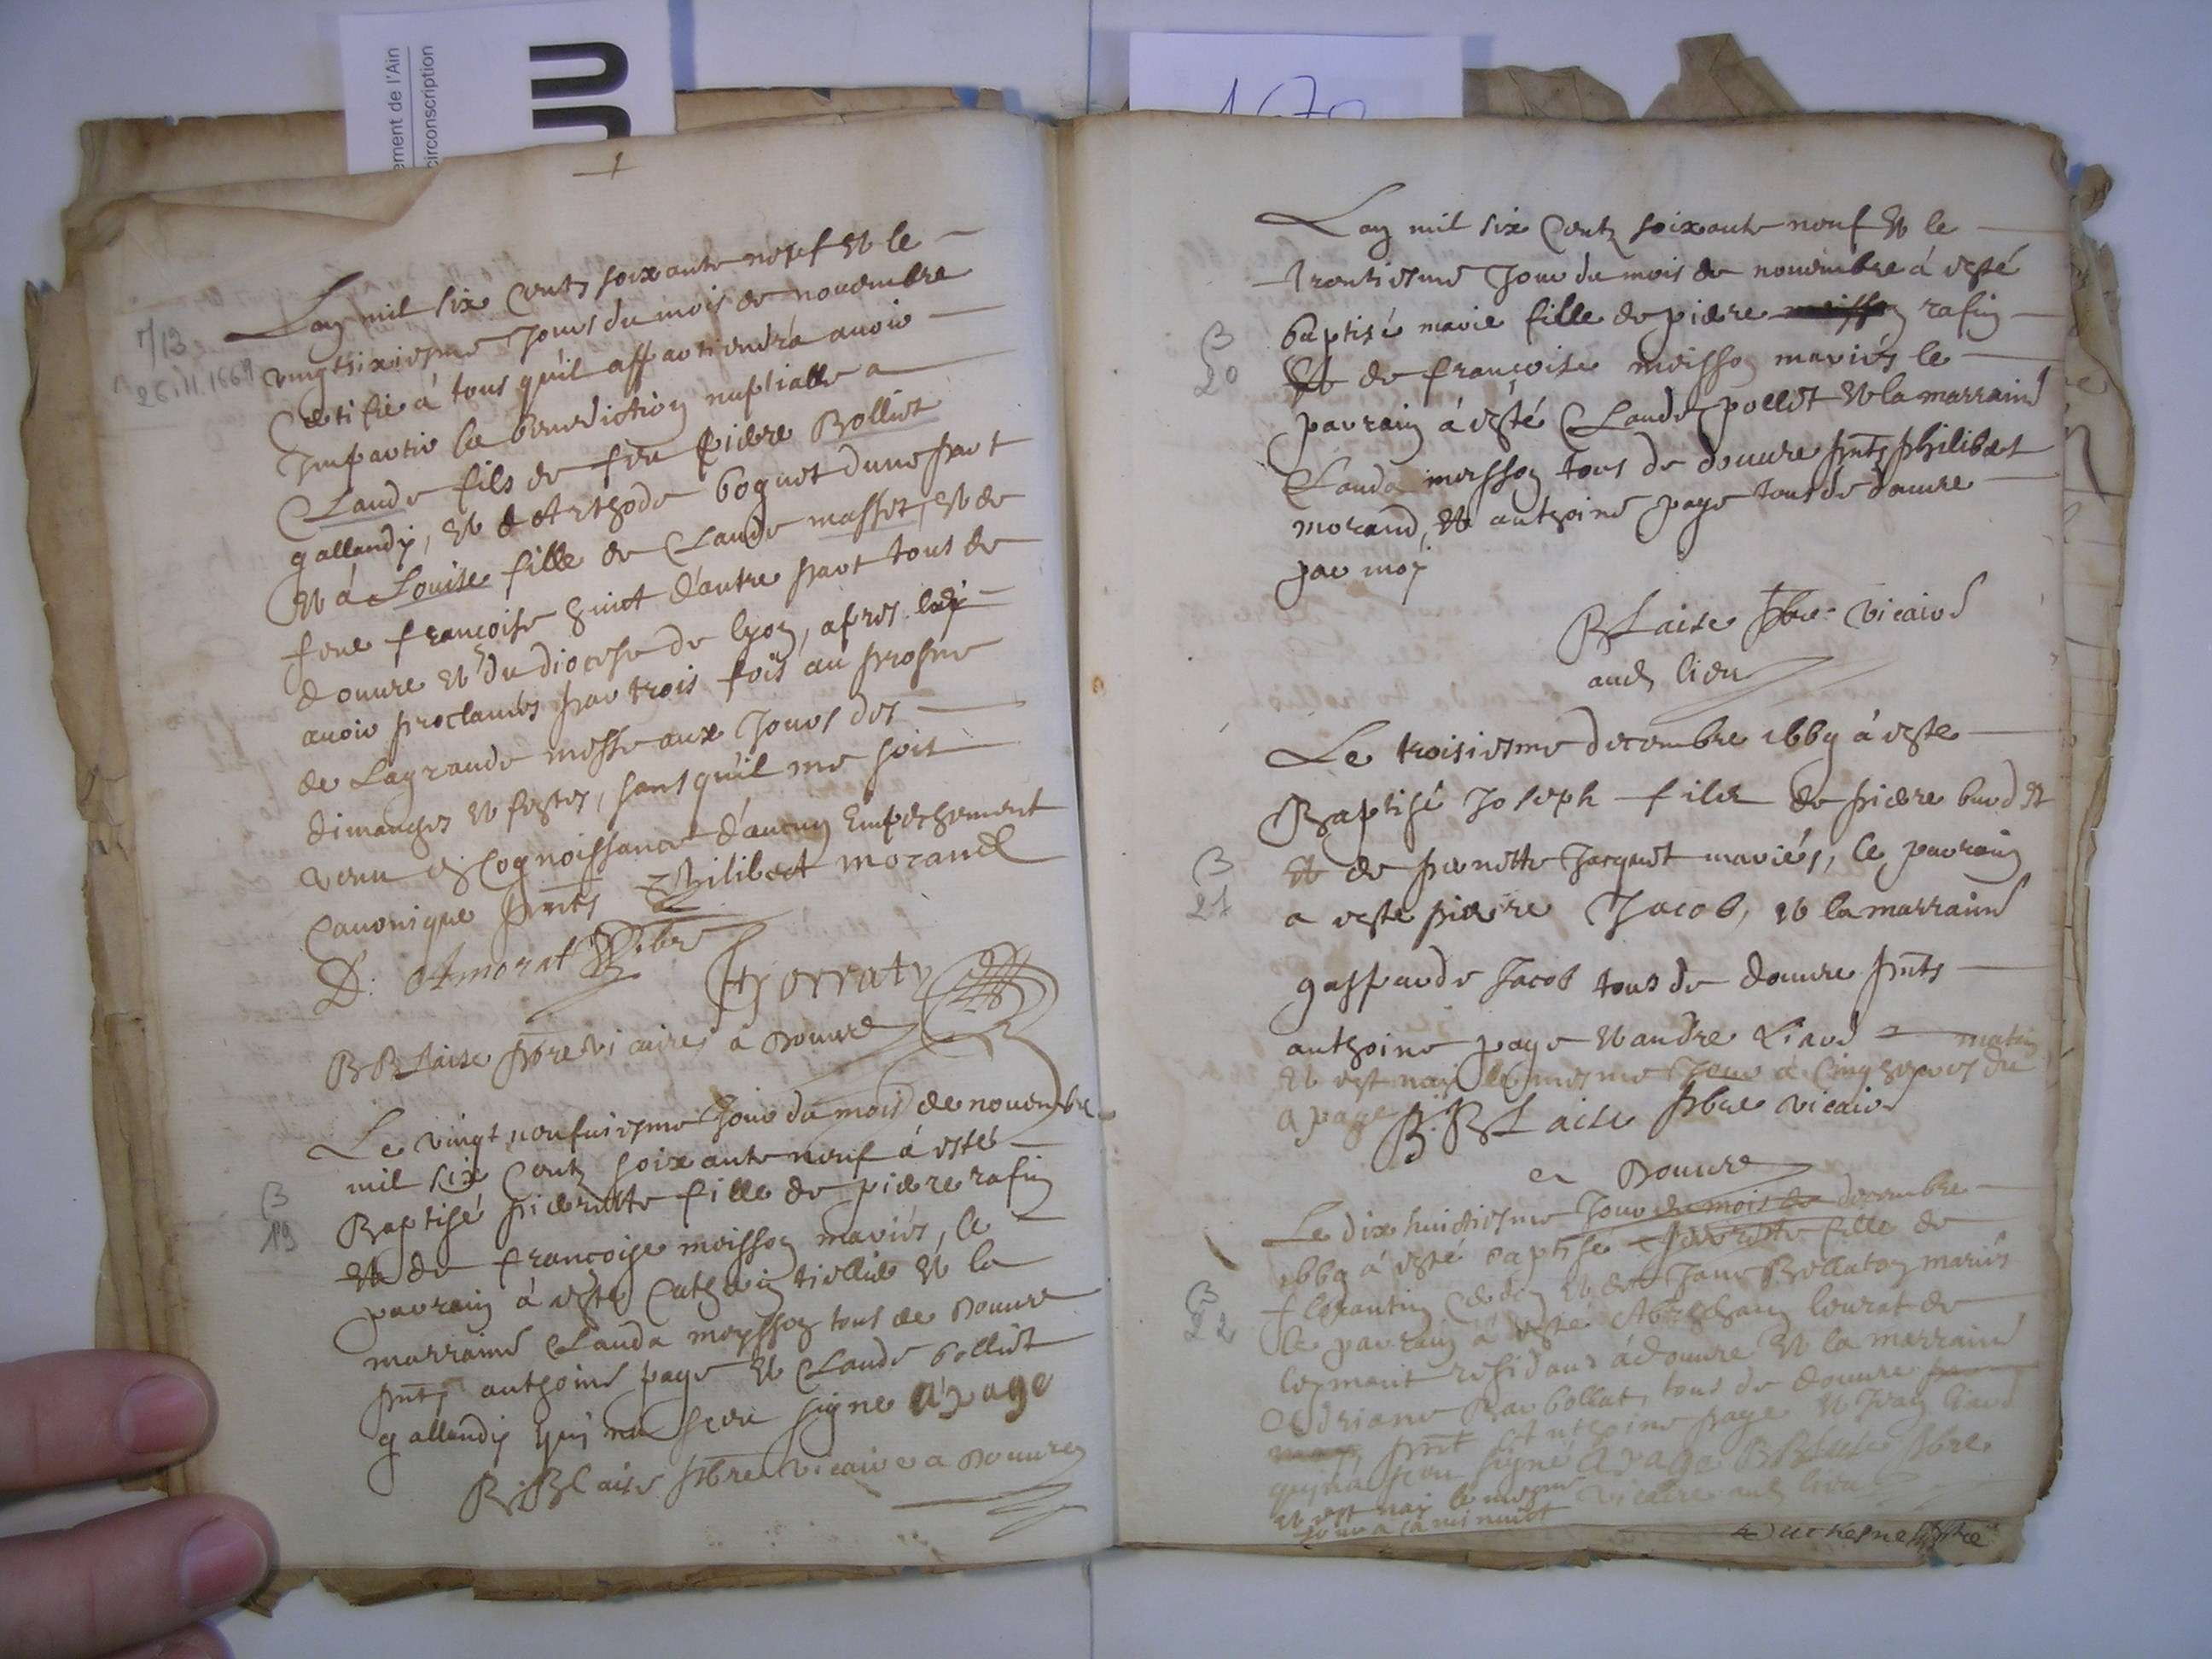 ement de l'Ain
circonscription
Lan mil six Centz soixante neuf et le
vingtsixiesme Jour du mois de novembre
Certifie á tous qu'il appartiendrá avoir
Imparti la benediction nuptialle a
Claude fils de feu pierre Bolliet
gallandy, et de Ethode boguet dune part
et á Louise fille de Claude masset, et de
feue françoise huict d'autre part tous de
douvre et du diocese de lyon, apres les
avoir proclamés par trois fois au prosne
de Lagrande messe aux Jours des
dimanches et festes, sans qu'il me soit
venu en Cognoissance d'aucun Empeschement
Canonique pnts philibert morand
D. Amorat
ferrat
B Blaise pbre vicaire a Douvre
7/13
26.11.1669
Le vingt neufuiesme Jour du mois de novembre
mil six Centz soixante neuf á esté
Baptisé pierrette fille de pierre rafin
et de françoise moisson mariés, le
parrain á esté Cathelin tiollie et la
marraine Clauda moysson tous de Douvre
pnts anthoine page et Claude bolliet
gallandy qui na sceu signe A page
B. Blaise pbre vicaire a Douvre
B
19
Lan mil six Centz soixante neuf et le
trentiesme Jour du mois de novembre á esté
baptisé marie fille de pierre rafin
et de françoise moisson mariés le
parrain á esté Claude pollet et la marraine
Clauda moisson tous de douvre pnts philibert
morand, et anthoine page tous de douvre
par moy
BLaise pbre vicaire
aud lieu
B
20
Le troisiesme decembre 1669 á esté
Baptisé Joseph fils de pierre burdet
et de pernette Jacquet mariés, le parrain
a esté pierre Jacob, et la marraine
gasparde Jacob tous de douvre pnts
anthoine page et andre Liard
et est nay le mesme Jour á Cinq heures du
matin
a page B. BLaise pbre vicaire
a Douvre
B
21
Le dix huictiesme Jour du mois de decembre
1669 á esté baptisé pierrette fille de
florantin et de Jane Bollaton mariés
le parrain á esté Abraham lourat de
leymant residant á douvre et la marraine
Adriane Barbollat, tous de douvre
pnt Anthoine page et Jean liard
qui na sceu signé A page B BLaise pbre
et est nay le mesme vicaire aud lieu
Jour a la minuict
B
22
Duchesne